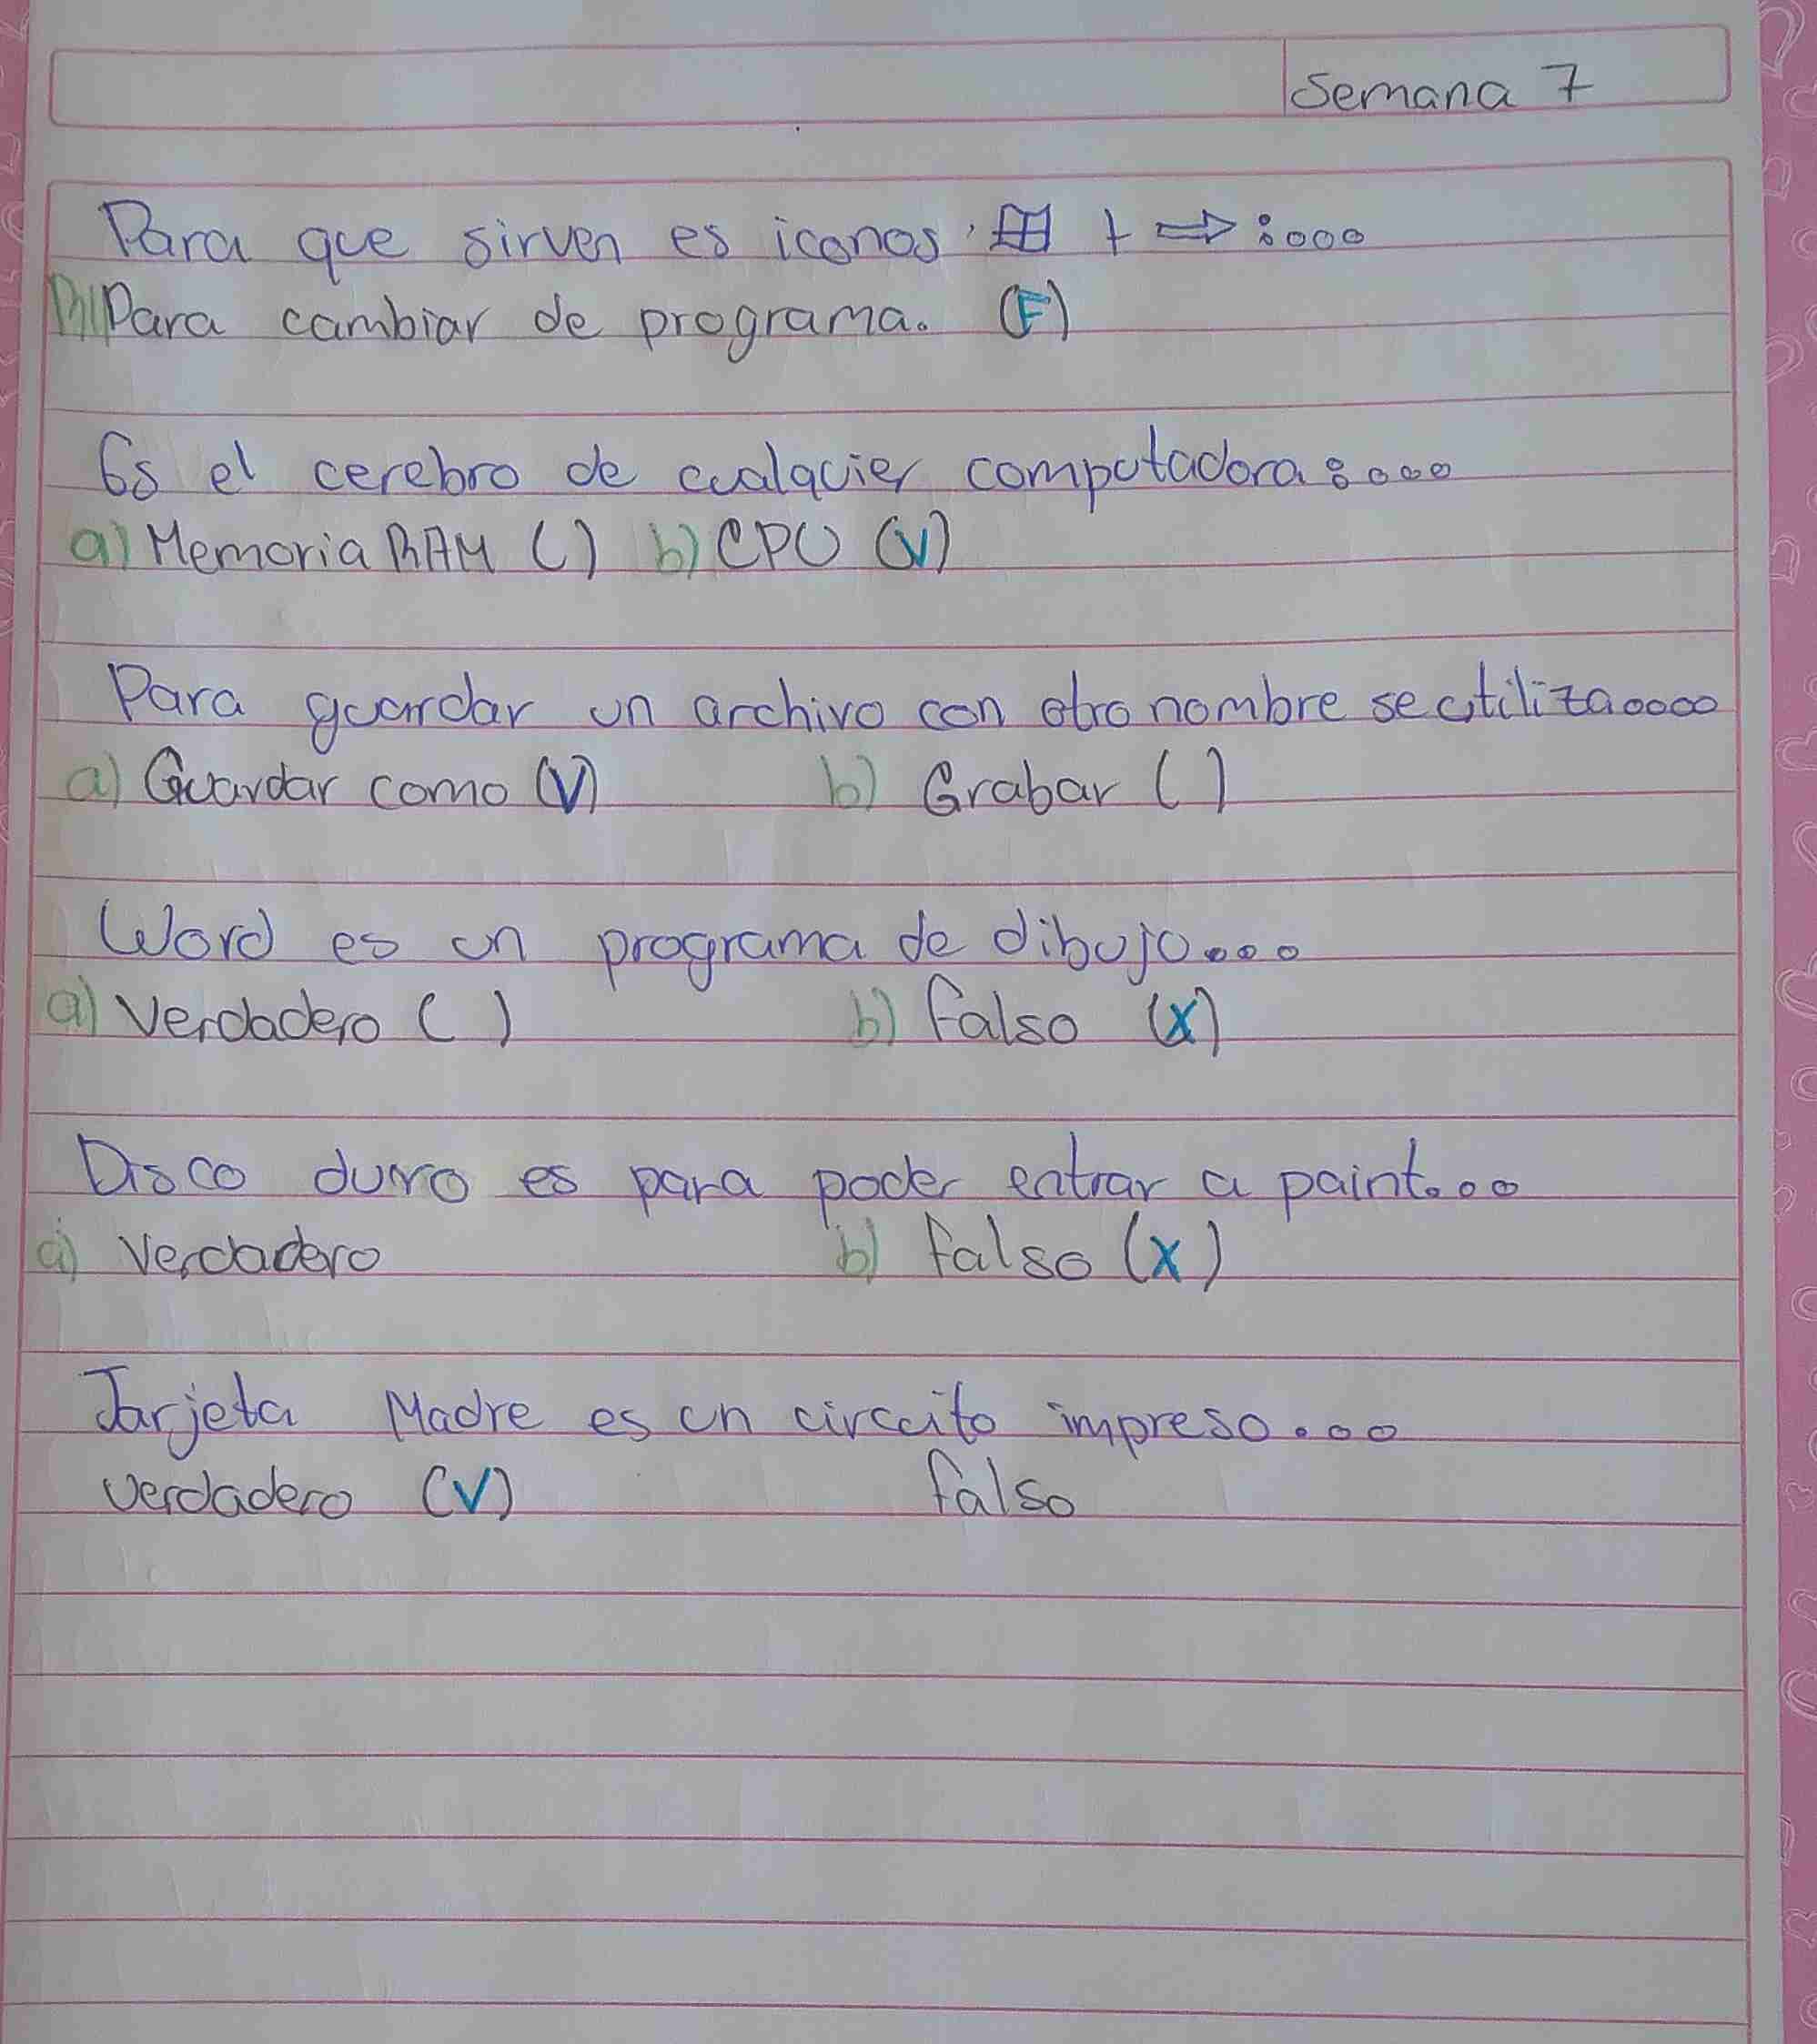 Semana 7
Para que sirven es iconos: ⊞ + ⇒ :...
R/Para cambiar de programa. (F)
Es el cerebro de cualquier computadora:...
a) Memoria RAM ( ) b) CPU (V)
Para guardar un archivo con otro nombre se utiliza....
a) Guardar como (V) b) Grabar ( )
Word es un programa de dibujo....
a) Verdadero ( ) b) falso (X)
Disco durro es para poder entrar a paint...
a) Verdadero b) falso (X)
Tarjeta Madre es un circuito impreso...
verdadero (V) falso